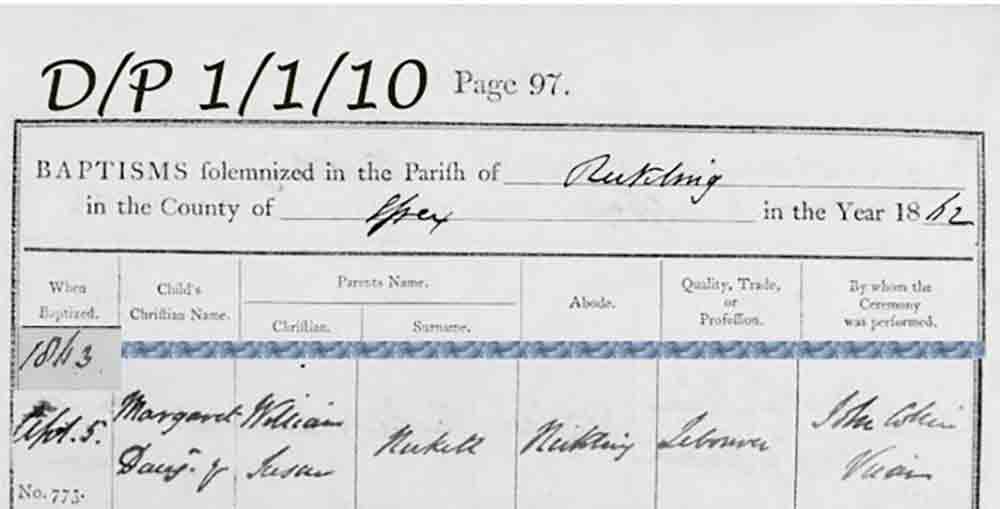 D/P 1/1/10 Page 97.
BAPTISMS ſolemnized in the Pariſh of
in the County of Essex in the Year 18 62
When Baptized.
Child's Chriſtian Name.
Parents Name.
Chriſtian.
Surname.
Abode.
Quality, Trade, or Profeſſion.
By whom the Ceremony was performed.
1863
Sept. 5.
No. 773.
Margaret
Daug. of
William
Susan
Labourer
John
Vicar